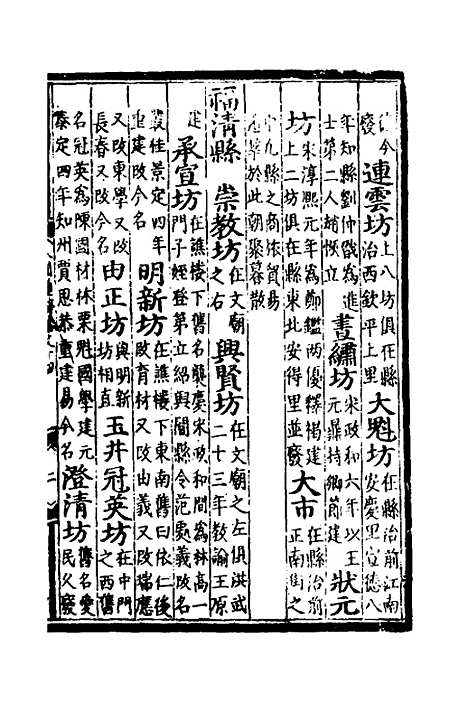 今廢連雲坊上八坊俱在縣治西欽平上里大魁坊在縣治前江南安慶里宣德八
年知縣劉仲戩為進士第二人趙恢立晝繡坊宋政和六年以王元鼎持鄉節建狀元
坊宋淳熙元年為鄭鑑兩優釋褐建上二坊俱在縣東北安得里並廢大市在縣治前正南街之
中九縣之商依貿易萃於此朝聚暮散
福清縣崇教坊在文廟之右興賢坊在文廟之左俱洪武二十三年教諭王原
建承宣坊在譙樓下舊名龔慶宋政和間為林高一門子姪登第立紹興間縣令范處義改名
叢桂景定四年重建改今名明新坊在譙樓下東南舊曰依仁後改育材又改由義又改瑞應
又改東學又改長春又改今名由正坊與明新坊相直玉井冠英坊在中門之西舊
名冠英為陳國材林栗魁國學建元泰定四年知州賈思恭重建易今名澄清坊舊名愛民久廢